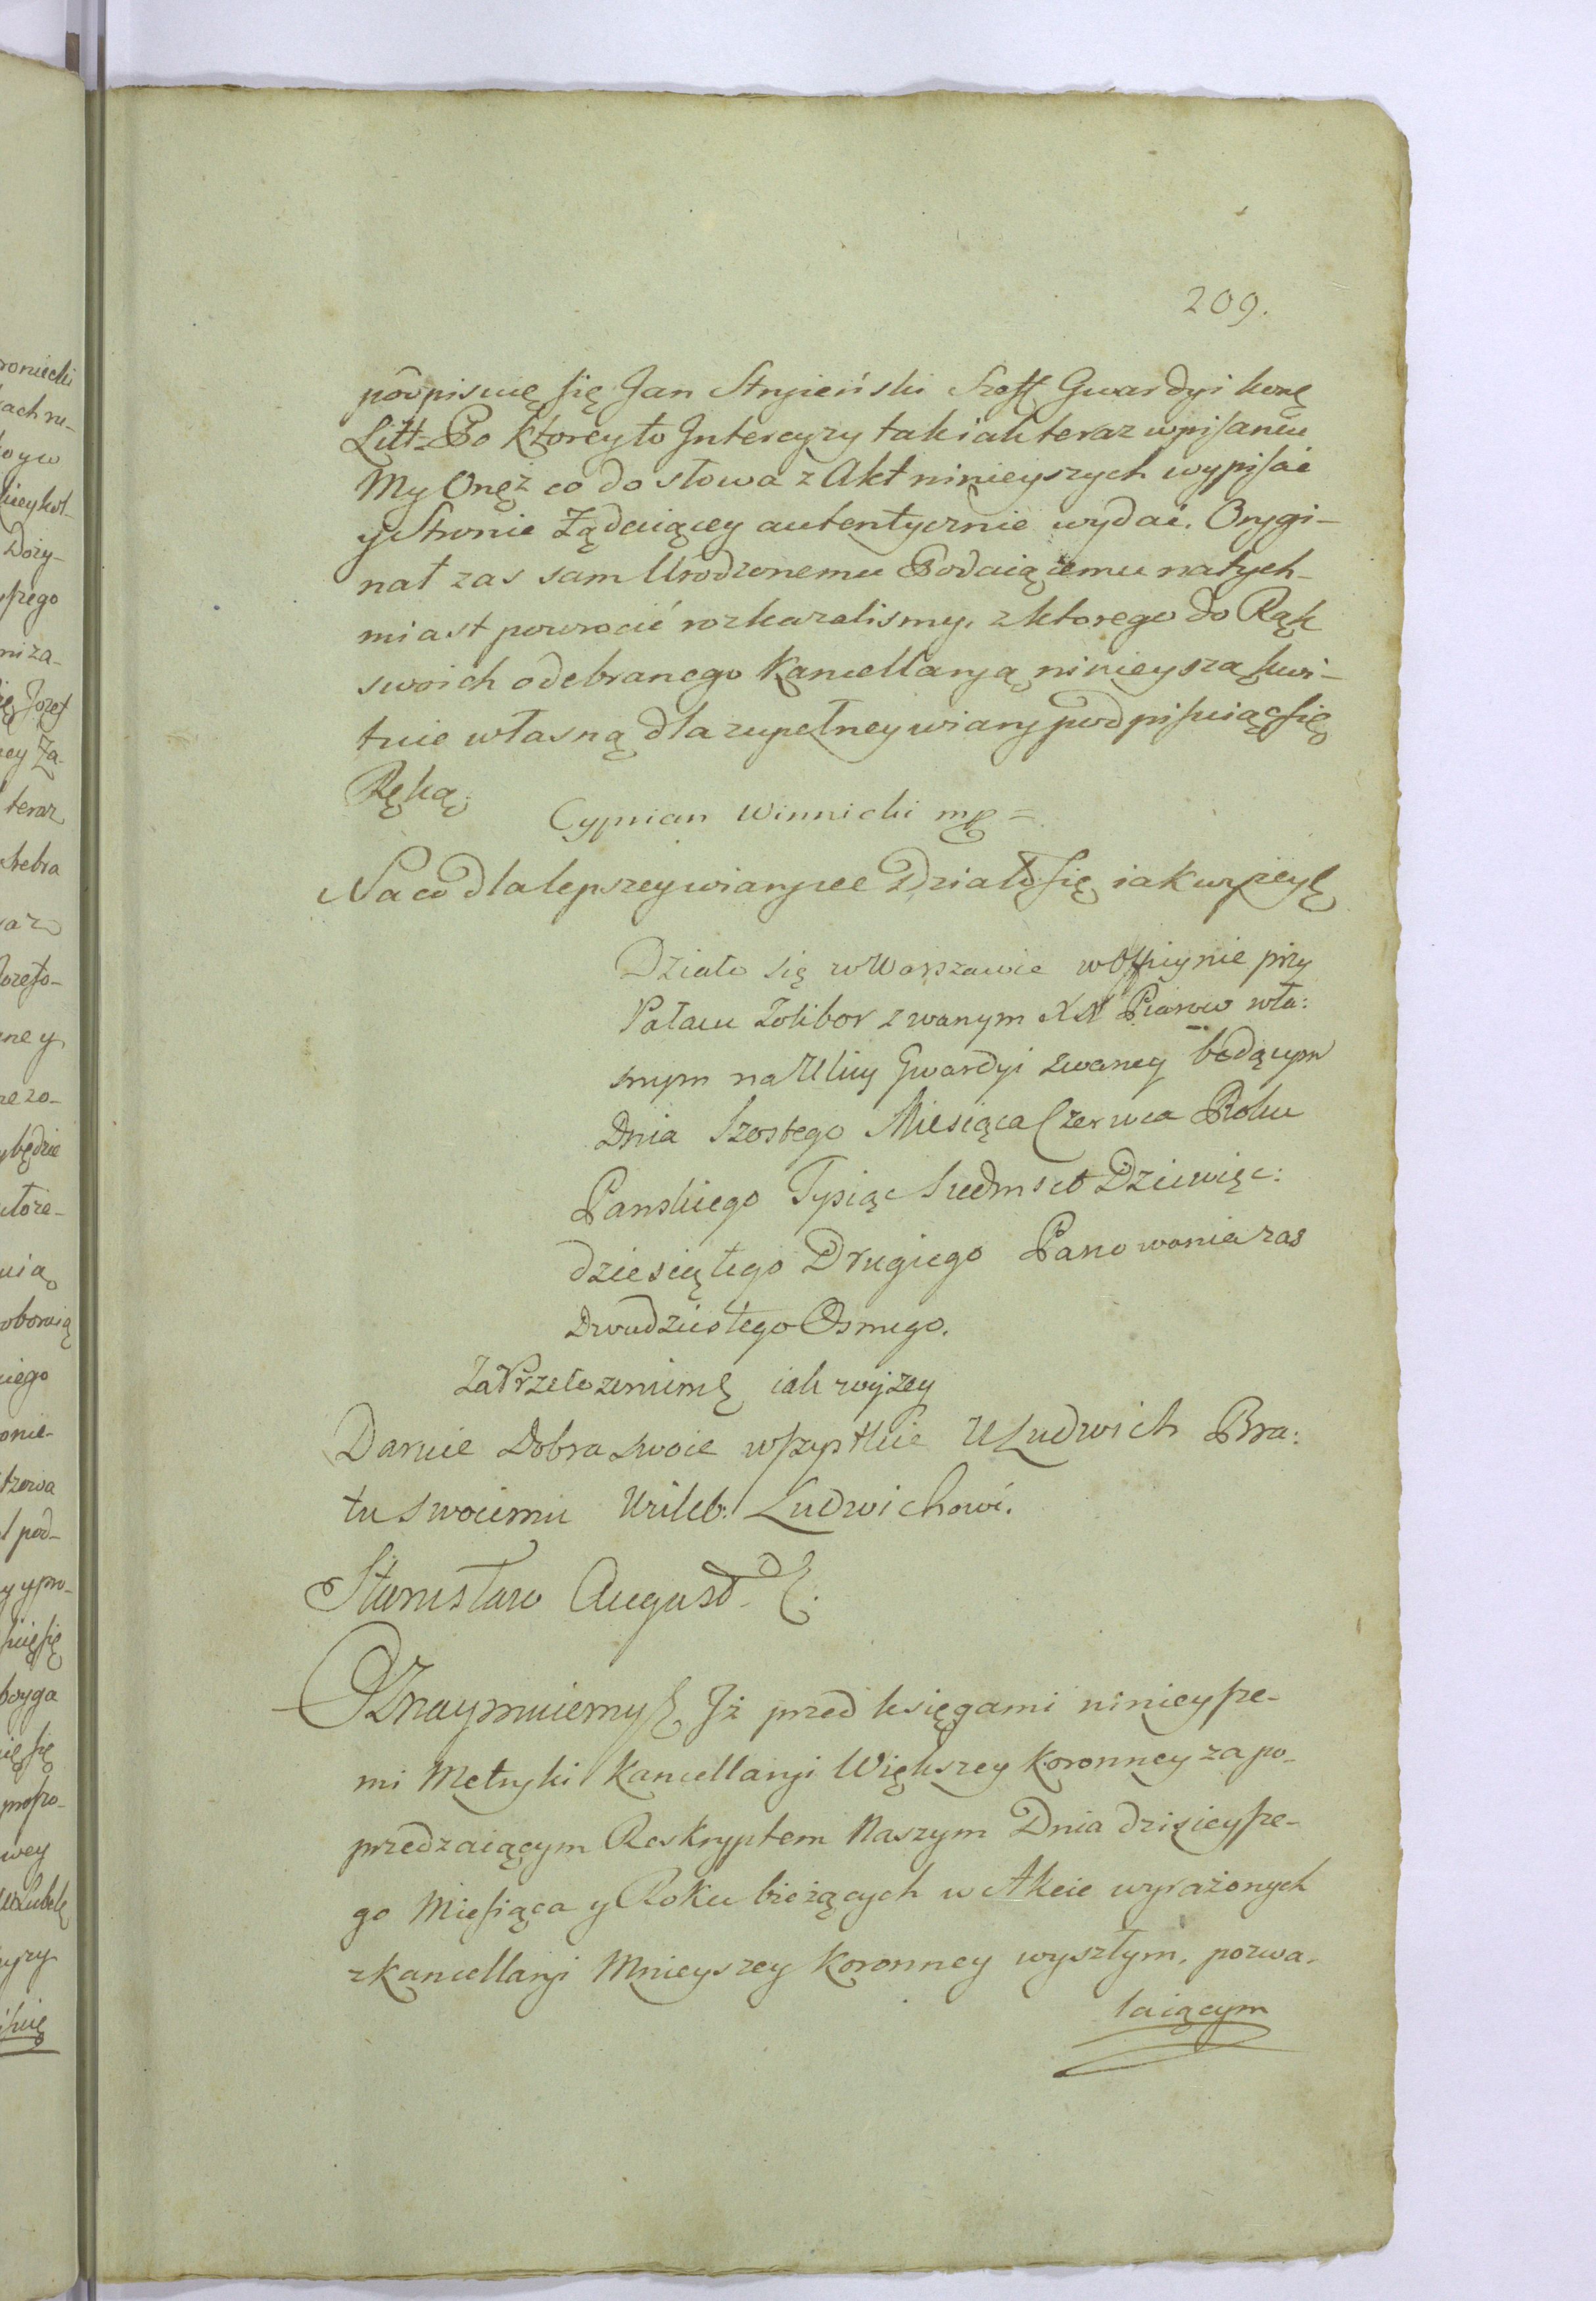 209.
podpisuię się Jan Stryieński Szeff Gwardyi konę
Litt. Po ktorey to Intercyzy tak iak teraz wpisaniu
My Onęż co do słowa z Akt ninieyszych wypisać
y Stronie Żądaiącey autentycznie wydać. Orygi-
nał zas sam Urodzonemu Podaiącemu natych-
miast powrocić rozkazalismy, z ktorego do Rąk
swoich odebranego Kancellaryą ninieyszą kwi-
tuie własną dla zupełney wiary podpisuiąc się
Ręką.
Cyprian Winnicki mp =
Na co dla lepszey wiary
Działo się iak wyżey
Działo się w Warszawie w Officynie przy
Pałacu Zolibor zwanym XX Piarow wła:
snym na Ulicy Gwardyi zwaney będącym
Dnia Szostego Miesiąca Czerwca Roku
Panskiego Tysiąc Siedmset Dziewięc:
dziesiątego Drugiego Panowania zas
Dwudziestego Osmego.
Za Przełozeniem iak wyzey
Daruie Dobra swoie wszystkie U Ludwich Bra:
tu swoiemu Ludwichowi.
Stanisław August
Oznaymuiemy Iż przed księgami ninieysze-
mi Metryki Kancellaryi Większey Koronney za po-
przedzaiącym Reskryptem Naszym Dnia dzisieysze-
go Miesiąca y Roku bieżących w Akcie wyrażonych
z Kancellaryi Mnieyszey Koronney wyszłym, pozwa-
laiącym
roniecki
ach ru-
Dozy-
szego
ni za-
Jozef
ey Za-
teraz
srebra
będzie
pod-
się